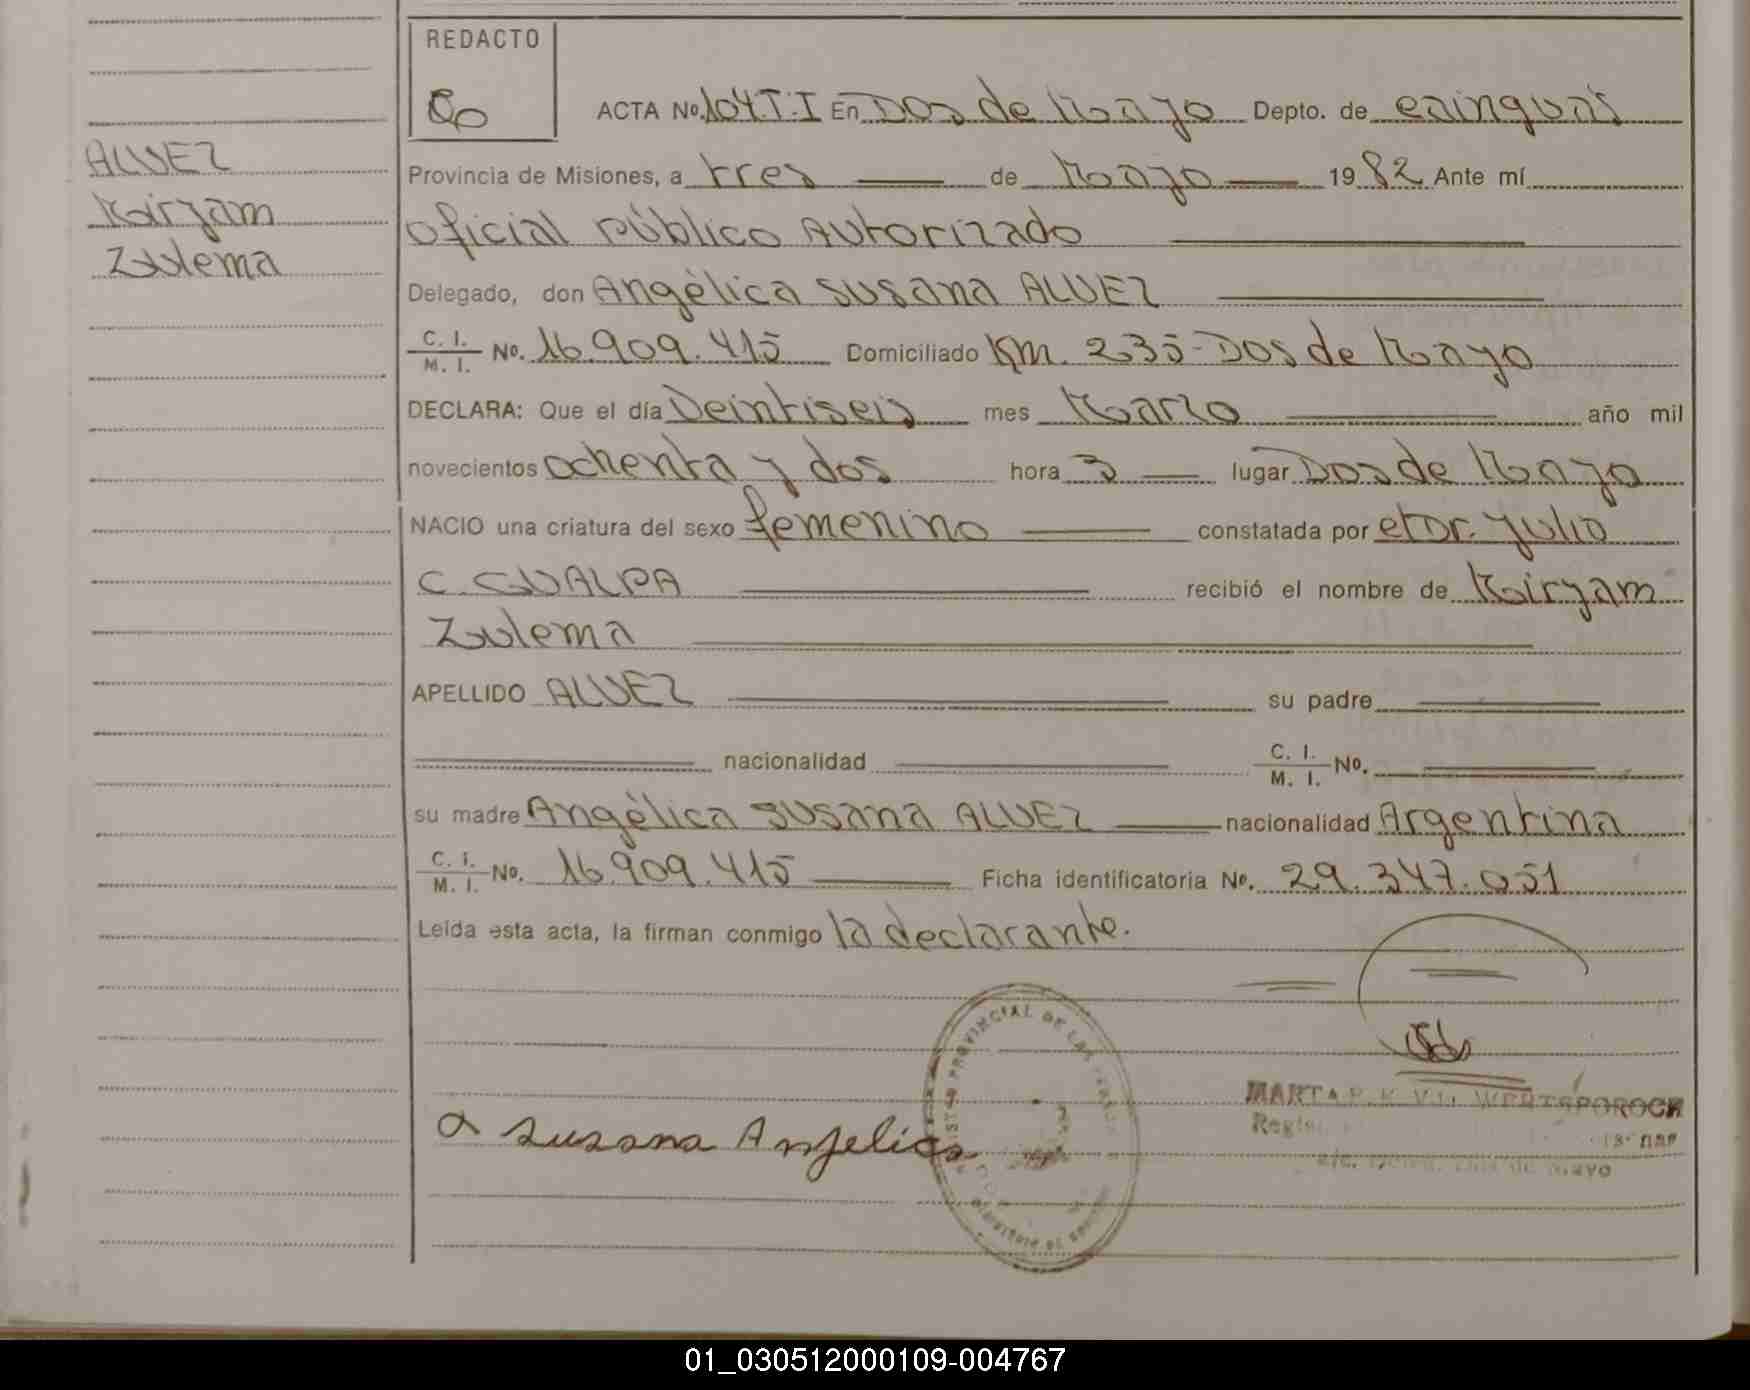 REDACTO
ACTA No. 104.T.I En Dos de Mayo Depto. de Cainguás
ALVEZ
Provincia de Misiones, a tres de Mayo 1982 Ante mí
Mirjam
Oficial Público Autorizado
Zulema
Delegado, don Angélica Susana ALVEZ
C. I. / M. I. No. 16.909.415 Domiciliado Km. 235-Dos de Mayo
DECLARA: Que el día Veintiseis mes Marzo año mil
novecientos ochenta y dos hora 3 lugar Dos de Mayo
NACIO una criatura del sexo femenino constatada por el Dr. Julio
C. GUALPA recibió el nombre de Mirjam
Zulema
APELLIDO ALVEZ su padre
nacionalidad C. I. / M. I. No.
su madre Angélica Susana ALVEZ nacionalidad Argentina
C. I. / M. I. No. 16.909.415 Ficha identificatoria No. 29.347.051
Leída esta acta, la firman conmigo la declarante.
PROVINCIAL DE LAS
MARTA
Susana Anjelica
de Mayo
01_030512000109-004767